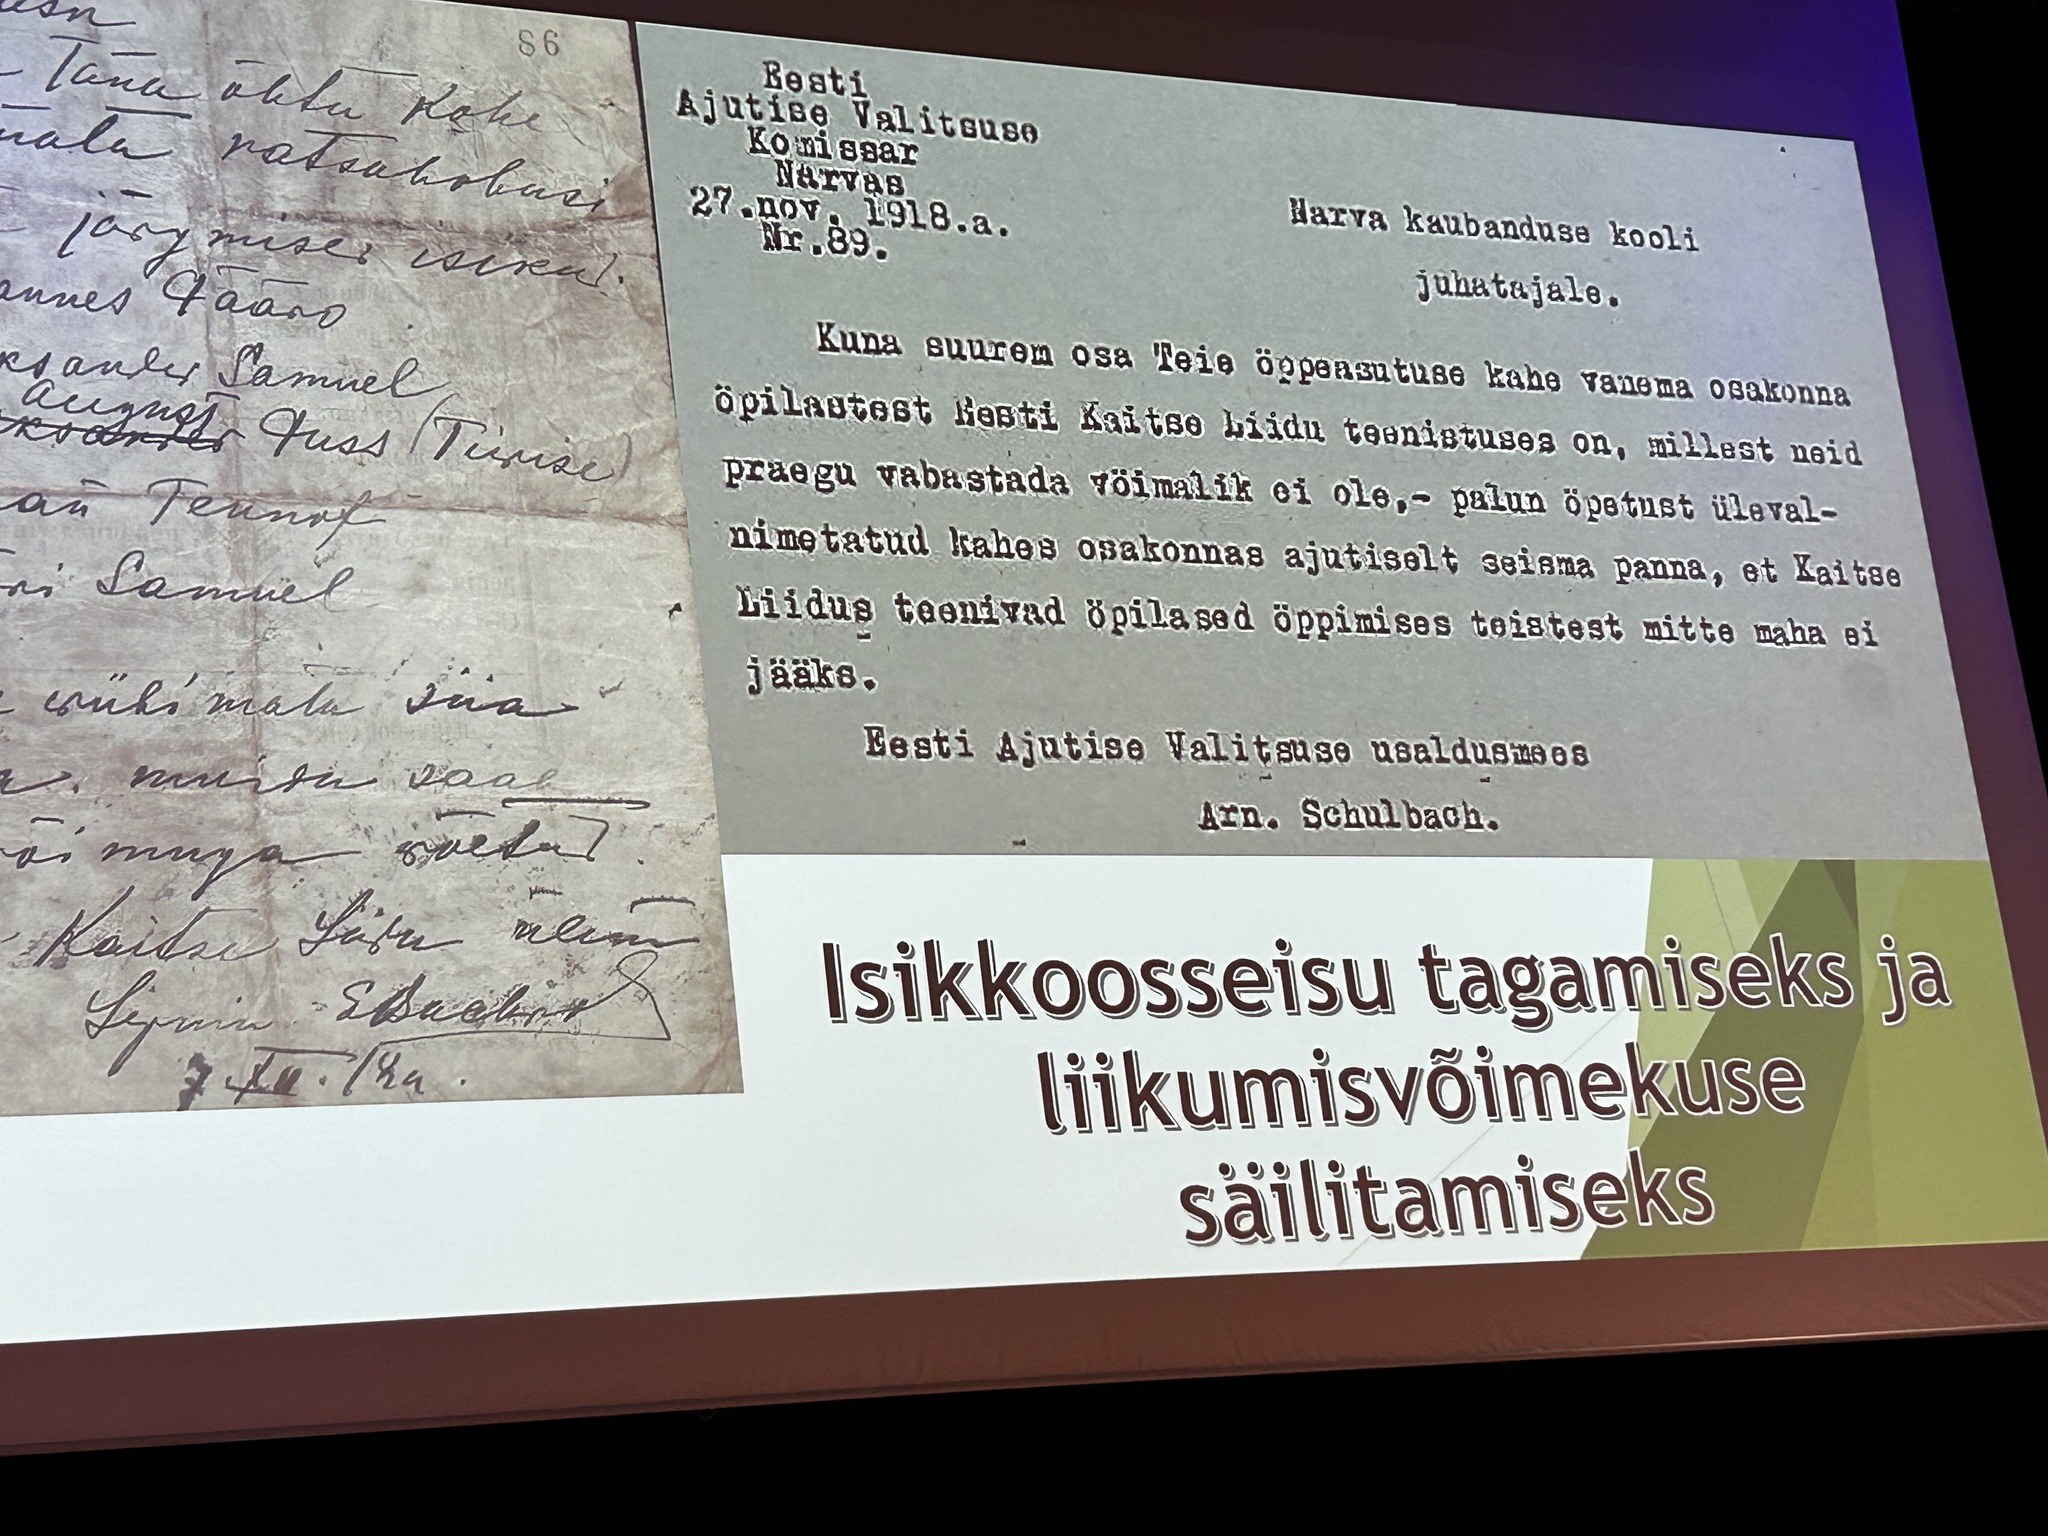 S6
Täna õhtu kohe
ratsahobusi
järgmised isikud.
Jääro
Samuel
August
Juss (Türise)
Tennof
Samuel
siia
muidu saab
wõimuga wõetud.
Kaitse Liidu ülem
Eesti
Ajutise Valitsuse
Komissar
Narvas
27.nov. 1918.a.
Nr.89.
Narva kaubanduse kooli
juhatajale.
Kuna suurem osa Teie öppeasutuse kahe vanema osakonna
öpilastest Eesti Kaitse Liidu teenistuses on, millest neid
praegu vabastada vöimalik ei ole,- palun öpetust üleval-
nimetatud kahes osakonnas ajutiselt seisma panna, et Kaitse
Liidus teenivad öpilased öppimises teistest mitte maha ei
jääks.
Eesti Ajutise Valitsuse usaldusmees
Arn. Schulbach.
Isikkoosseisu tagamiseks ja
liikumisvõimekuse
säilitamiseks